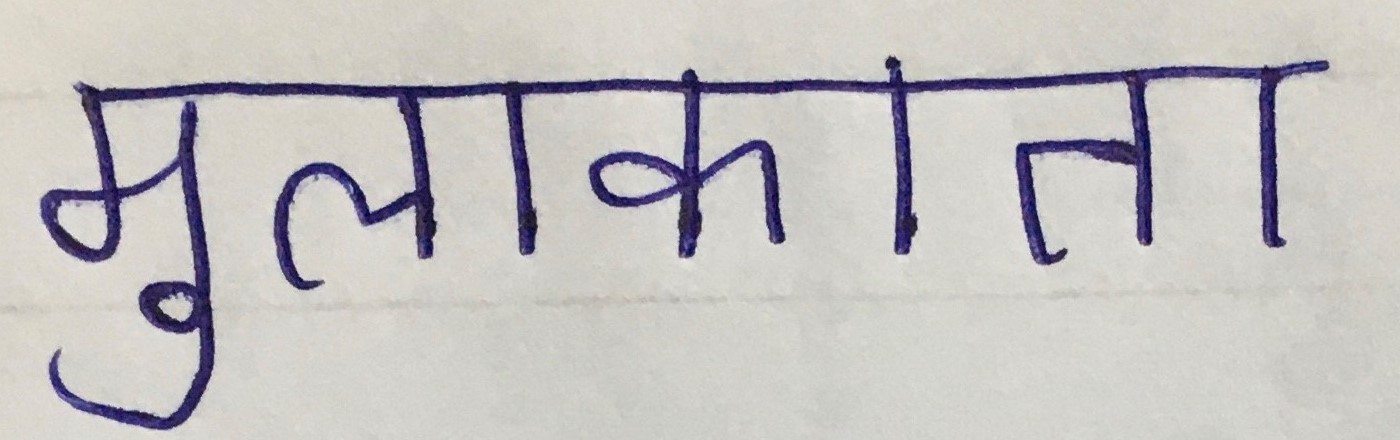 मुलाकाता